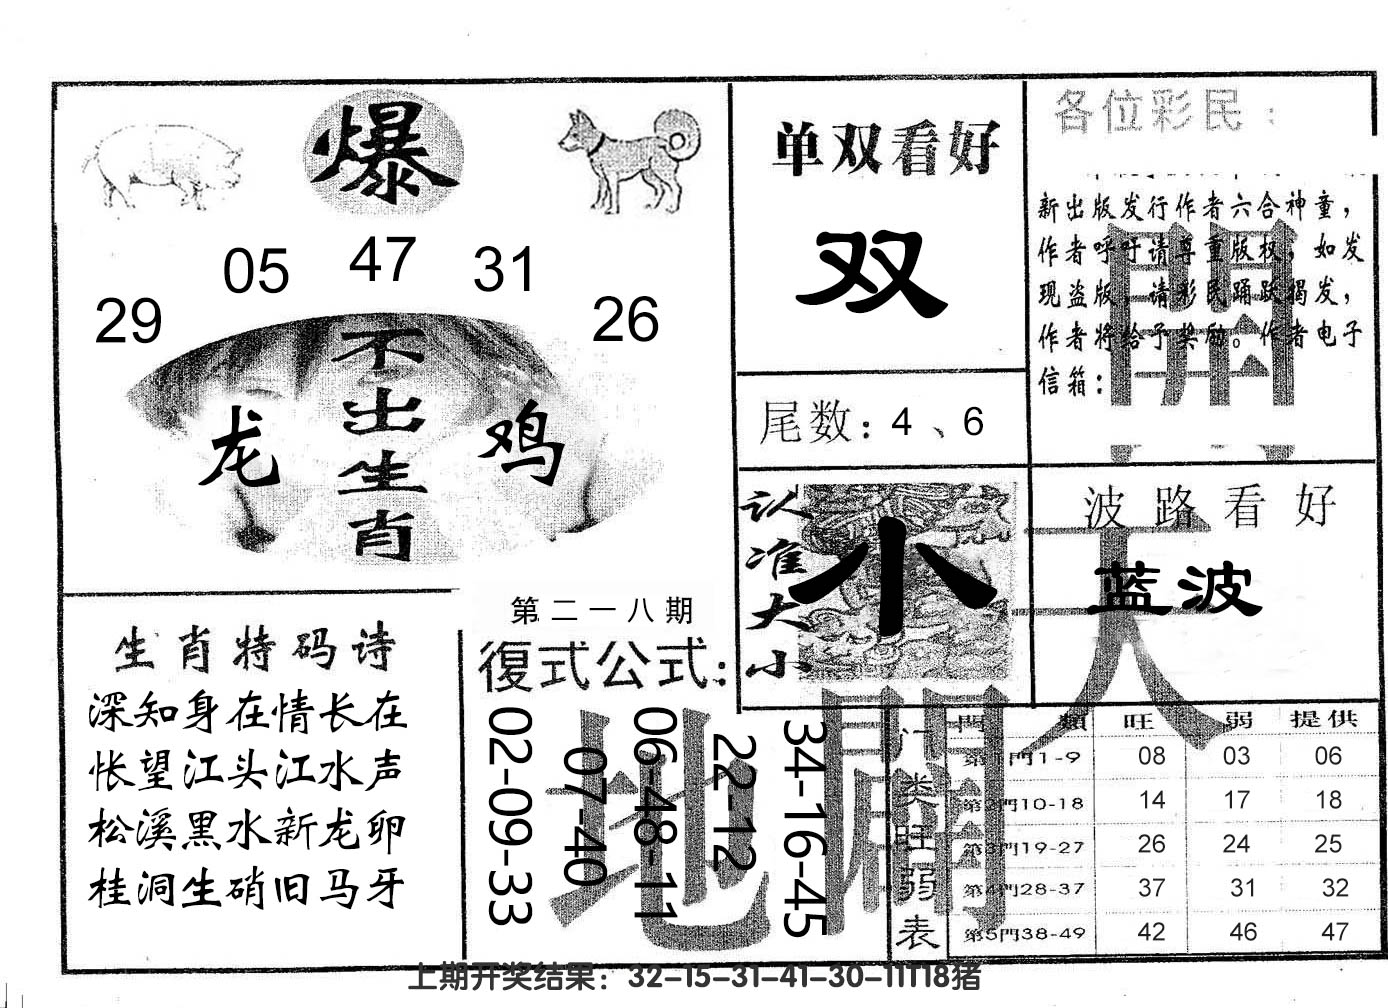 爆
29 05 47 31 26
不出生肖
龙 鸡
单双看好
双
尾数：4、6
各位彩民：
新出版发行作者六合神童，
作者呼吁请尊重版权，如发
现盗版，请彩民踊跃揭发，
作者将给予奖励。作者电子
信箱：
認准大小
小
波路看好
蓝波
天
開
地
闢
生肖特码诗
深知身在情长在
怅望江头江水声
松溪黑水新龙卵
桂洞生硝旧马牙
第二一八期
復式公式：
02-09-33
07-40
06-48-11
22-12
34-16-45
门类旺弱表
門類 旺 弱 提供
第1門1-9 08 03 06
第2門10-18 14 17 18
第3門19-27 26 24 25
第4門28-37 37 31 32
第5門38-49 42 46 47
上期开奖结果：32-15-31-41-30-11T18猪